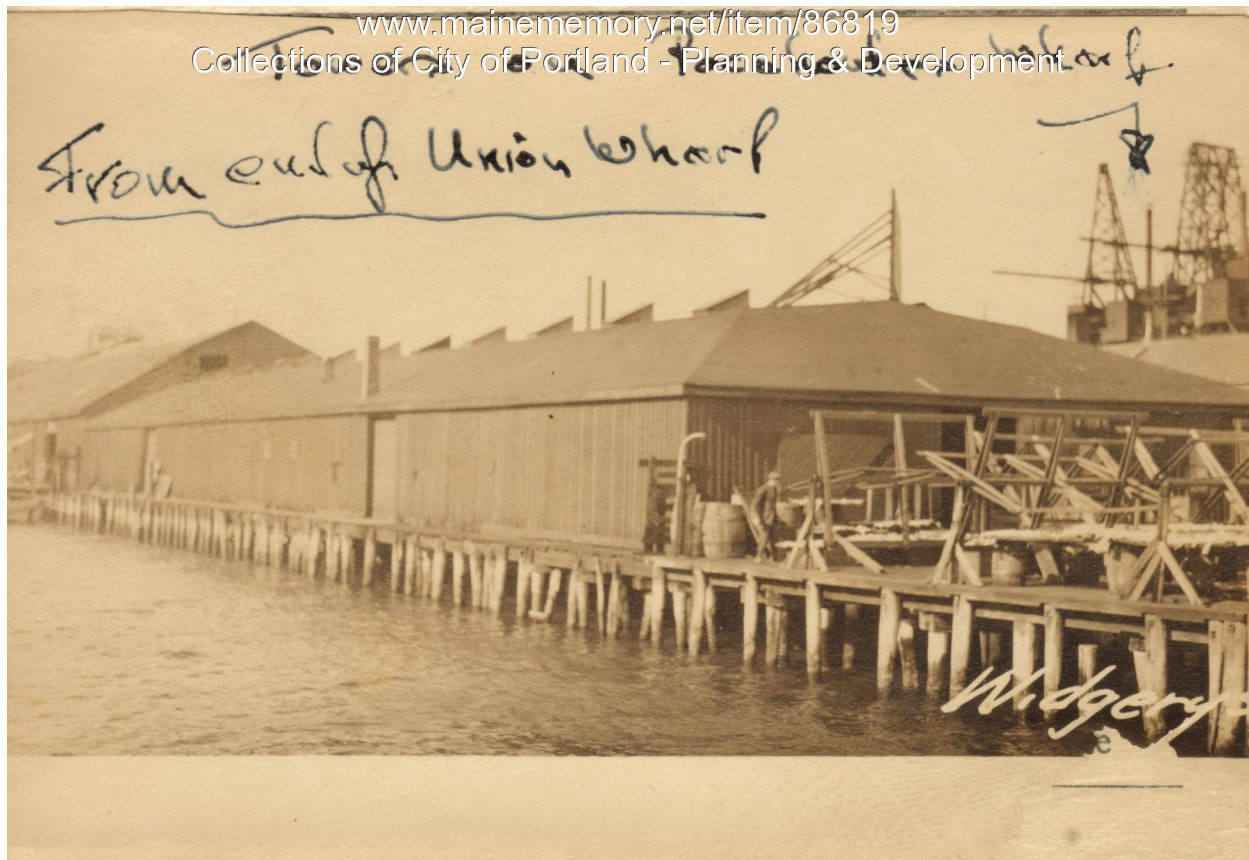 www.mainememory.net/item/86819
Collections of City of Portland - Planning & Development
Towers on Wharf
From end of Union Wharf
Widgery
e